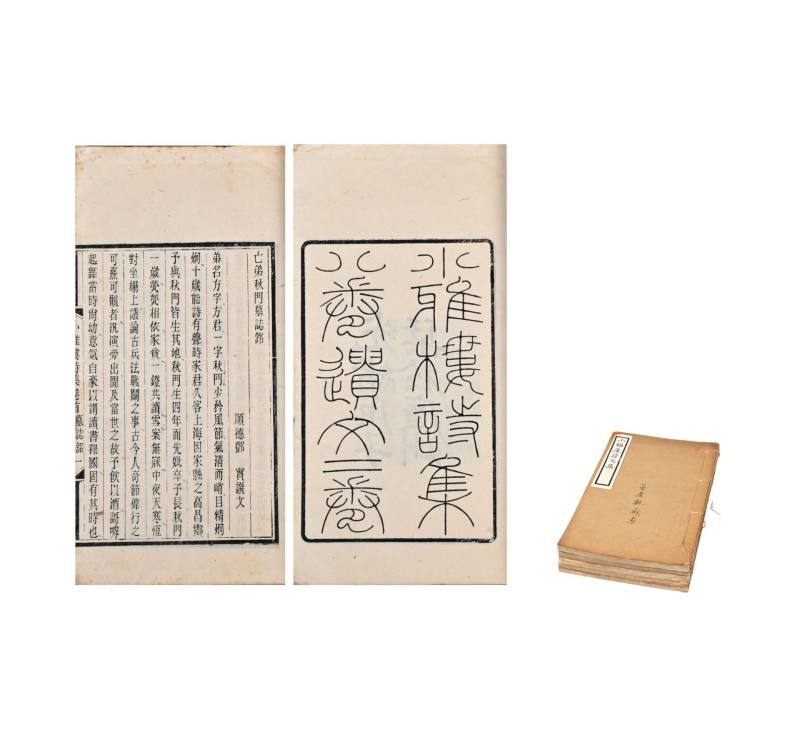 亡弟秋門墓誌銘
順德鄧 實譔文
弟名方字方君一字秋門少矜風節氣清而峭目精炯
炯十歲能詩有聲時家君久客上海回家縣之高昌鄉
予與秋門皆生其地秋門生四年而先妣卒予長秋門
一歲煢煢相依家貧一鐙共讀雪案無寐中夜天寒恒
對坐榻上議論古兵法戰鬭之事古今人奇節偉行之
可熹可觀者況演旁出間及當世之故予飲以酒謌嘑
起舞當時尚幼意氣自豪以謂讀書報國固有其時也
小雅樓詩集卷首墓誌銘 一
小雅樓詩集
八卷遺文二卷
小雅樓詩文集